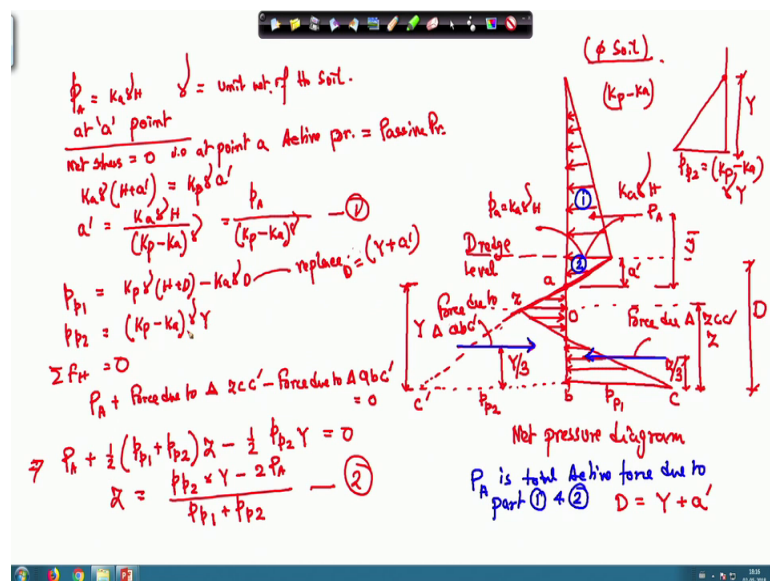 (ϕ soil).
(Kp-Ka)
Y
Pp2 = (Kp-Ka)γY
pA = KaγH   γ = unit wt. of the soil.
at 'a' point
Net stress = 0 i.e. at point a Active pr. = Passive Pr.
Kaγ(H+a') = Kpγa'
a' = KaγH / (Kp-Ka)γ = pA / (Kp-Ka)γ — ①
pp1 = Kpγ(H+D) - KaγD — replace D = (Y+a')
pp2 = (Kp-Ka)γY
ΣFH = 0
PA + Force due to Δ zcc' - Force due to Δ abc' = 0
⇒ PA + 1/2 (pp1 + pp2) Z - 1/2 pp2 Y = 0
Z = (pp2 × Y - 2PA) / (pp1 + pp2) — ②
pa = KaγH
KaγH
①
PA
ȳ
Dredge
level
②
a
a'
D
Force due to
Δ abc'
Z
O
Force due Δ zcc'
Z
Y
Y/3
Z/3
c'
pp2
b
pp1
c
Net pressure diagram
PA is total Active force due to
part ① & ②   D = Y + a'
18:16